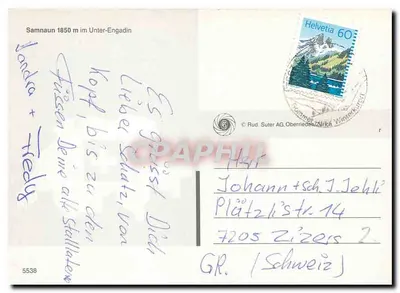 Samnaun 1850 m im Unter-Engadin
Es grüsst Dich
Lieber Schatz, von
Kopf bis zu den
Füssen Deine alte
+ Fredy
Helvetia 60
© Rud. Suter AG, Oberrieden
Johann + sch. J. Jehli
Plätzlistr. 14
7205 Zizers 2.
GR. (Schweiz)
5538